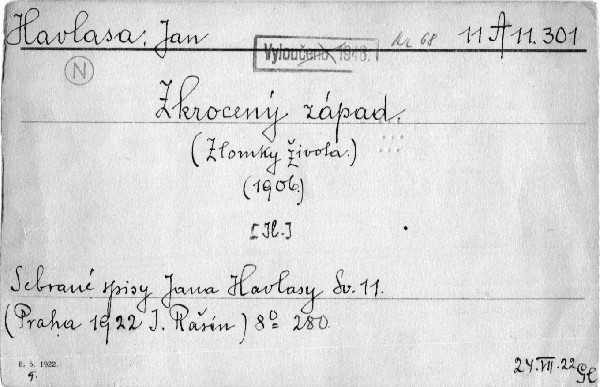 Havlasa, Jan
Vyloučeno 1948. Nr 68 11 A 11.301
N
Zkrocený západ.
(Zlomky života.)
(1906)
[Il.]
Sebrané spisy Jana Havlasy Sv. 11.
(Praha 1922 I. Rašín) 8° 280
8. 5. 1922.
24. VII. 22